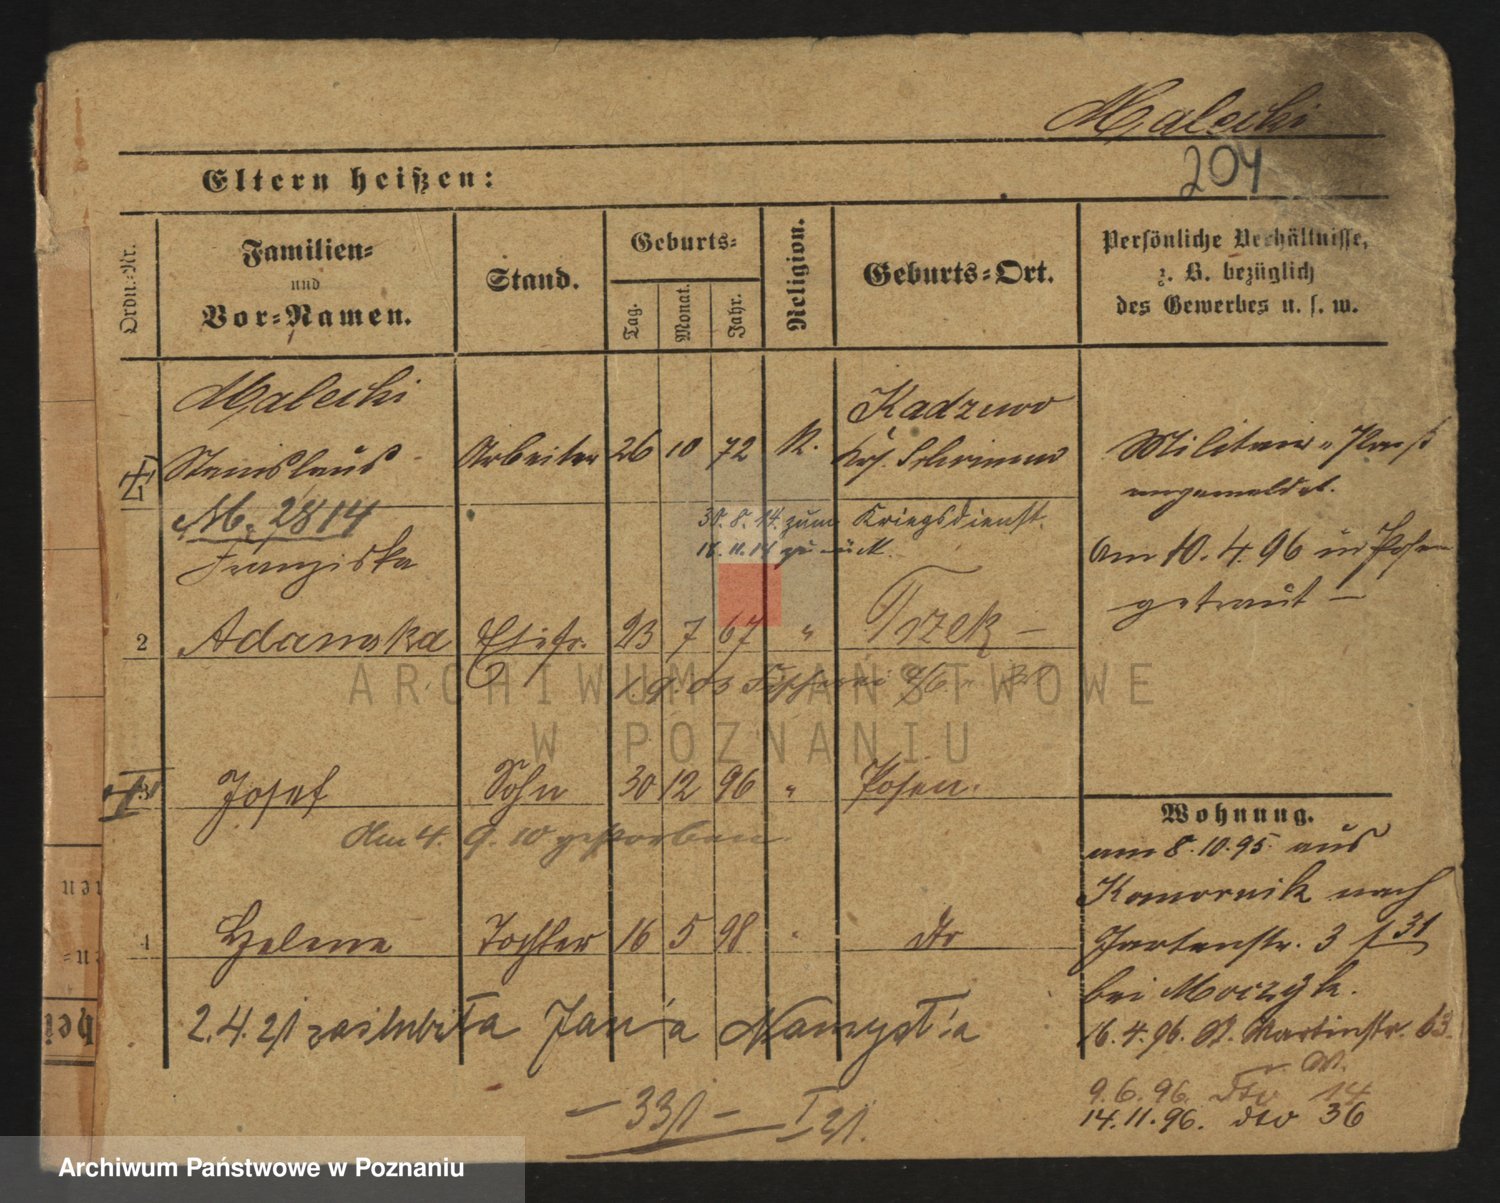 Malecki
204
Eltern heißen:
Ordn.-Nr.
Familien-
und
Vor-Namen.
Stand.
Geburts-
Tag.
Monat.
Jahr.
Religion.
Geburts-Ort.
Persönliche Verhältnisse,
z. B. bezüglich
des Gewerbes u. s. w.
Malecki
Stanislaus Arbeiter 26 10 72 K. Kadzewo
Krs. Schrimm
Militair-Paß
angemeldet.
Am 10.4.96 in Posen
getraut
M. 2814
30.8.14. zum Kriegsdienst.
18.11.14 zurück.
Franziska
2 Adamska Ehefr. 23 7 67 " Trzek
1.9.03
3 Josef Sohn 30 12 96 " Posen.
Am 4. 9. 10 gestorben.
4 Helene Tochter 16 5 98 " dto
2.4.21 zaślubiła Jana Namysła
331 - I 21.
Wohnung.
am 8.10.95 aus
Komornik nach
Gartenstr. 3 f 31
bei Moczyk.
16.4.96. St. Martinstr. 63.
9.6.96. dto 14
14.11.96. dto 36
ARCHIWUM PAŃSTWOWE
W POZNANIU
Archiwum Państwowe w Poznaniu